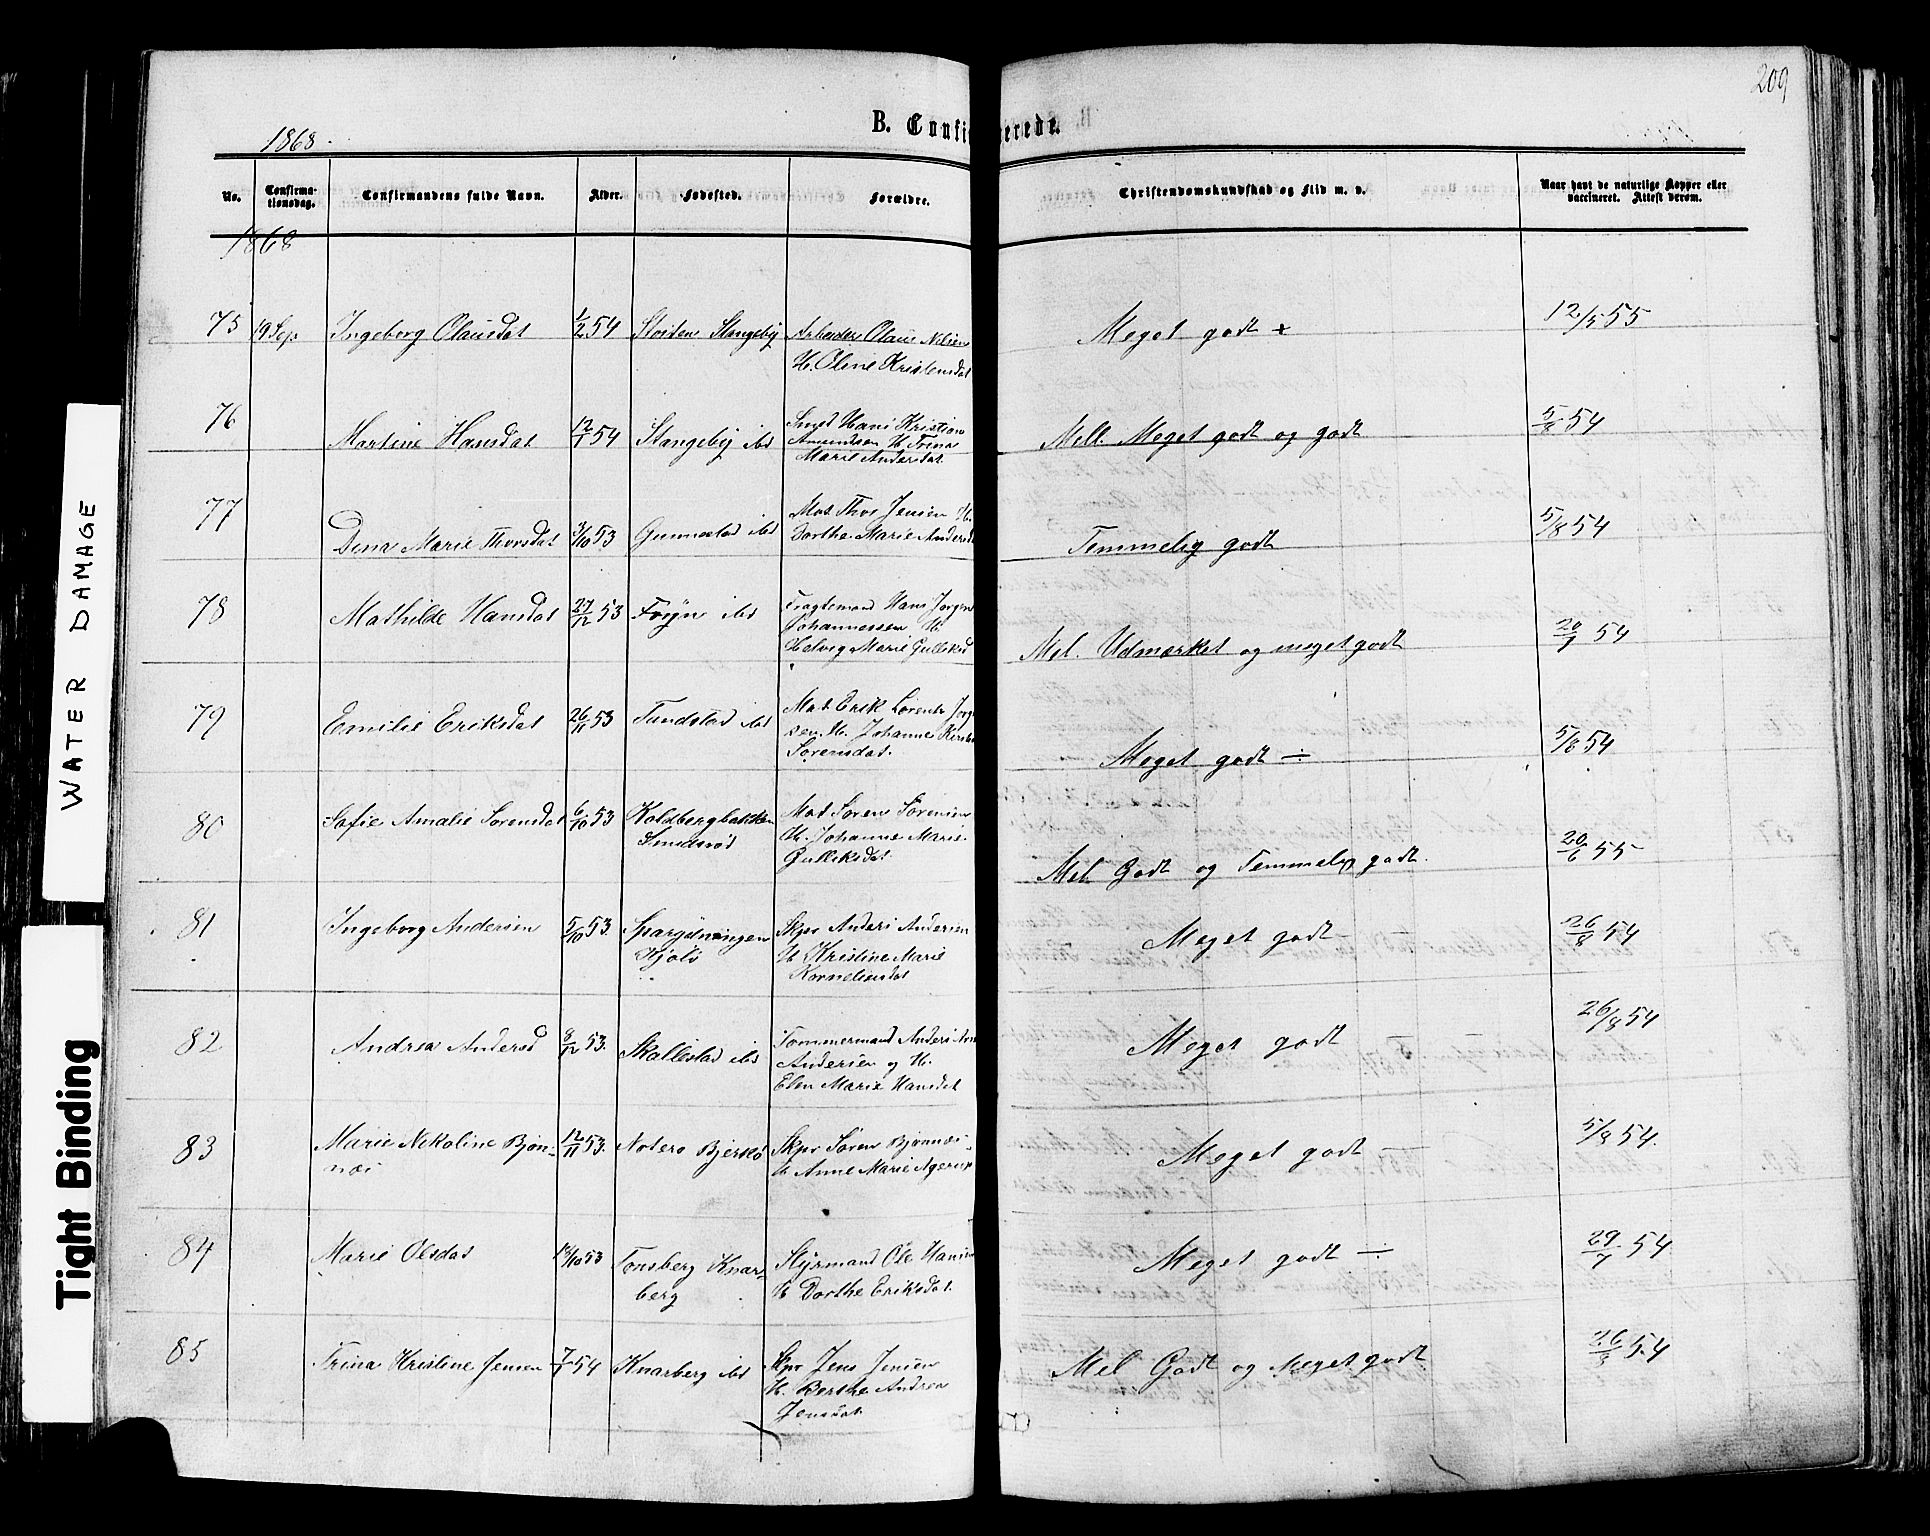 209
1868.
B. Confirmerede.
No.
Confirma-
tionsdag.
Confirmandens fulde Navn.
Alder.
Fødested.
Forældre.
Christendomskundskab og Flid m. v.
Naar havt de naturlige Kopper eller
vaccineret. Attest derom.
1868
75 19 Sep Ingeborg Olausdat 1/2 54 Stangeby Arbeider Olaus Nilsen Meget godt + 12/5 55
H. Oline Kristensdat
76 Martine Hansdat 12/1 54 Stangeby ibd Smed Hans Kristian Mell. Meget godt og godt 5/8 54
Amundsen H. Trina
Marie Andersdat
77 Dina Marie Thorsdat 3/10 53 Gunnestad ibd Mat Thor Jensen H. Temmelig godt 5/8 54
Dorthe Marie Andersd
78 Mathilde Hansdat 27/12 53 Føyn ibd Fragtemand Hans Jørgen Mel. Udmærket og meget godt 20/7 54
Johannessen H.
Hedvig Marie Gulleksd
79 Emilie Eriksdat 26/11 53 Tandstad ibd Mat Erik Lorents Jørg Meget godt ÷ 5/8 54
sen H. Johanne Kirsti
Sørensdat.
80 Sofie Amalie Sørensdat 6/10 53 Koldbergbakken Mat Søren Sørensen Mel Godt og Temmelig godt. 20/6 55
Smidsrød H. Johanne Marie
Gulliksdat
81 Ingeborg Andersen 5/10 53. Kjøle Skpr Anders Andersen Meget godt 26/8 54
H Kristine Marie
Korneliusdat
82 Andrea Andersd 8/12 53. Skallestad ibd Tømmermand Anders Meget godt 26/8 54
Andersen og H.
Elen Marie Hansdat
83 Marie Nikoline Bjøn- 12/11 53. Noterø Bjerkø Skpr Søren Bjønnæs Meget godt 5/8 54.
næs H Anne Marie Agerup
84 Marie Olsdat 18/10 53 Tønsberg Knar- Styrmand Ole Hansen Meget godt ÷ 29/7 54
berg H Dorthe Eriksdat.
85 Trina Kristine Jensen 7/1 54 Knarberg ibd Skpr Jens Jensen Mel Godt og Meget godt 26/8 54
H. Berthe Andrea
Jensdat
WATER DAMAGE
Tight Binding